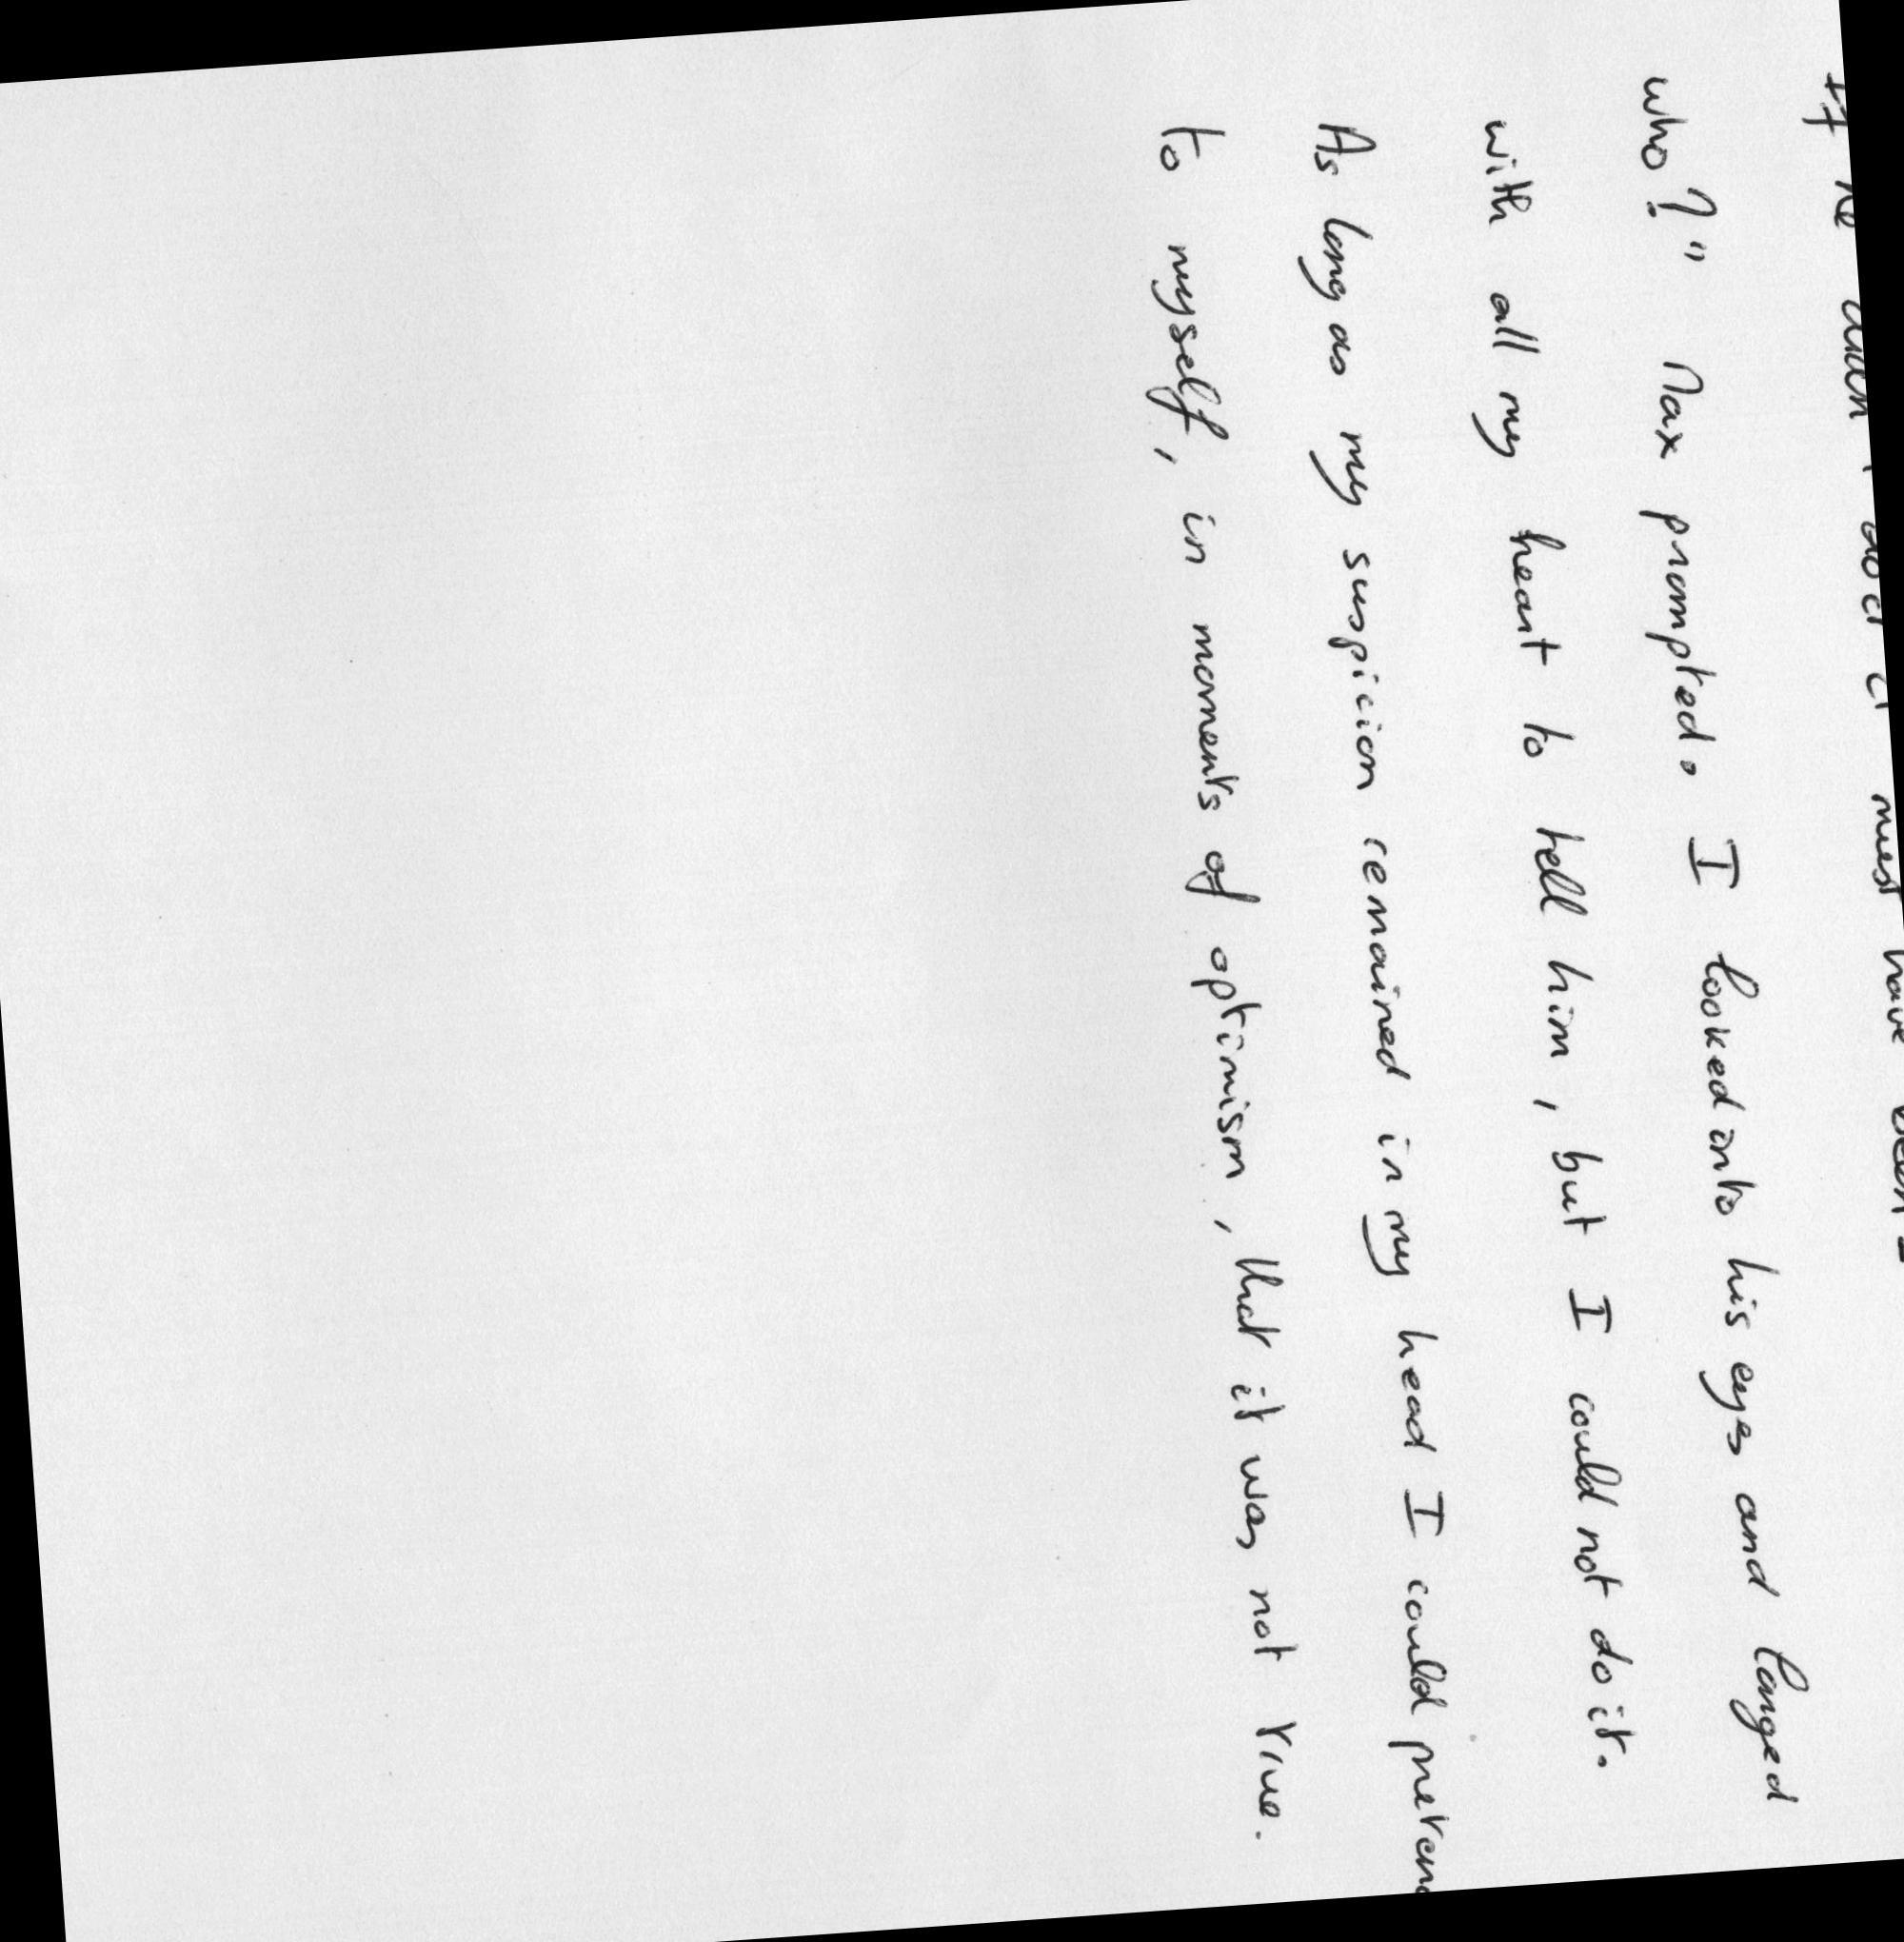 If he didn't do it it must have been -
who?" Max prompted. I looked into his eyes and longed
with all my heart to tell him, but I could not do it.
As long as my suspicion remained in my head I could pretend
to myself, in moments of optimism, that it was not true.